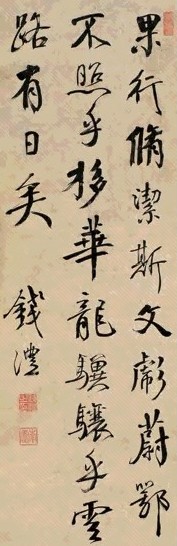 果行脩潔斯文彪蔚鄂
不照乎移華龍驥驤乎雲
路有日矣
錢澧